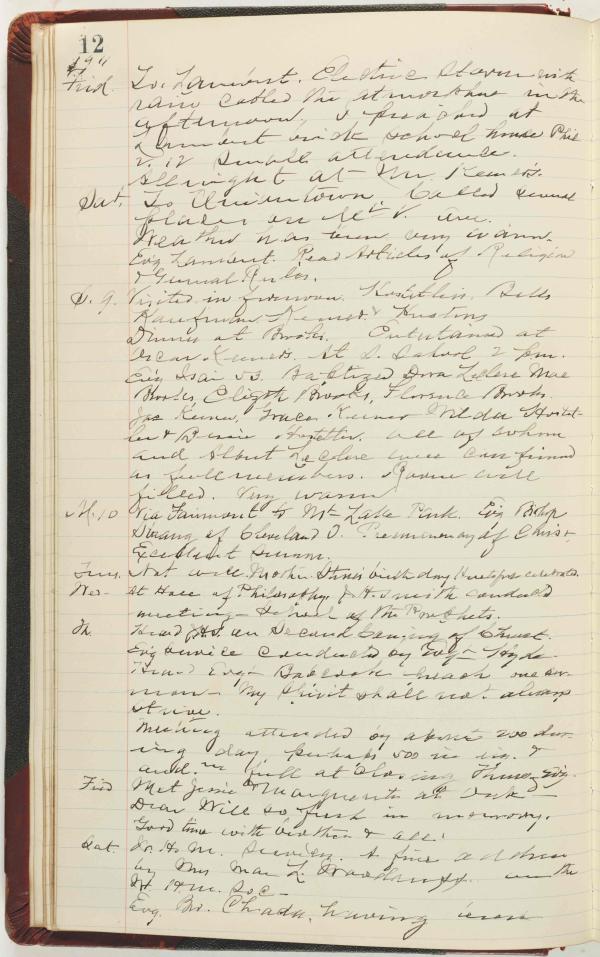 12
1911
Frid. To Lambert. Electric storm with
rain cooled the atmosphere in the
afternoon. I preached at
Lambert brick school house Phil
small attendence.
All night at Mr. Keener's.
Sat. To Uniontown. Called several
places on Mt V. Ave.
Weather has been very warm.
Evg Lambert. Read Articles of Religion
& General Rules.
S. 9. Visited in forenoon
Kaufman,
Dinner at Brooks. Entertained at
Oscar Keeners. At S. School 2 p.m.
Evg Isai 53. Baptized Dora Leclere Mae
Brooks, Elizth Brooks, Florence Brooks.
Jas Keener, Grace Keener Wilda Hostet-
ler & Bessie Hostetler. All of whom
and Albert Leclere were confirmed
as full members. Room well
filled. Very warm
M. 10 Via Fairmont to Mt Lake Park. Evg Bishop
of Cleveland O. Preeminency of Christ.
Excellent sermon.
Tues. Not well. Mother birth day
Wes- At Hall of Philosophy J. H. Smith conducted
meeting - School of the Prophets.
Th. Heard on Second Coming of Christ.
Evg service conducted by Hyde.
Heard Evgt Babcock preach one ser-
mon - My Spirit shall not always
strive.
Meeting attended by about 200 dur-
ing day, perhaps 500 in evg. &
aud. full at closing
Frid Met Jessie & Marguerite at
Dear Will so fresh in memory.
Good time with brother & all.
Sat. W. H. M. Service. A fine address
by Mrs May L. Woodruff in the
W. H. M. Soc-
Evg. Bro. having been